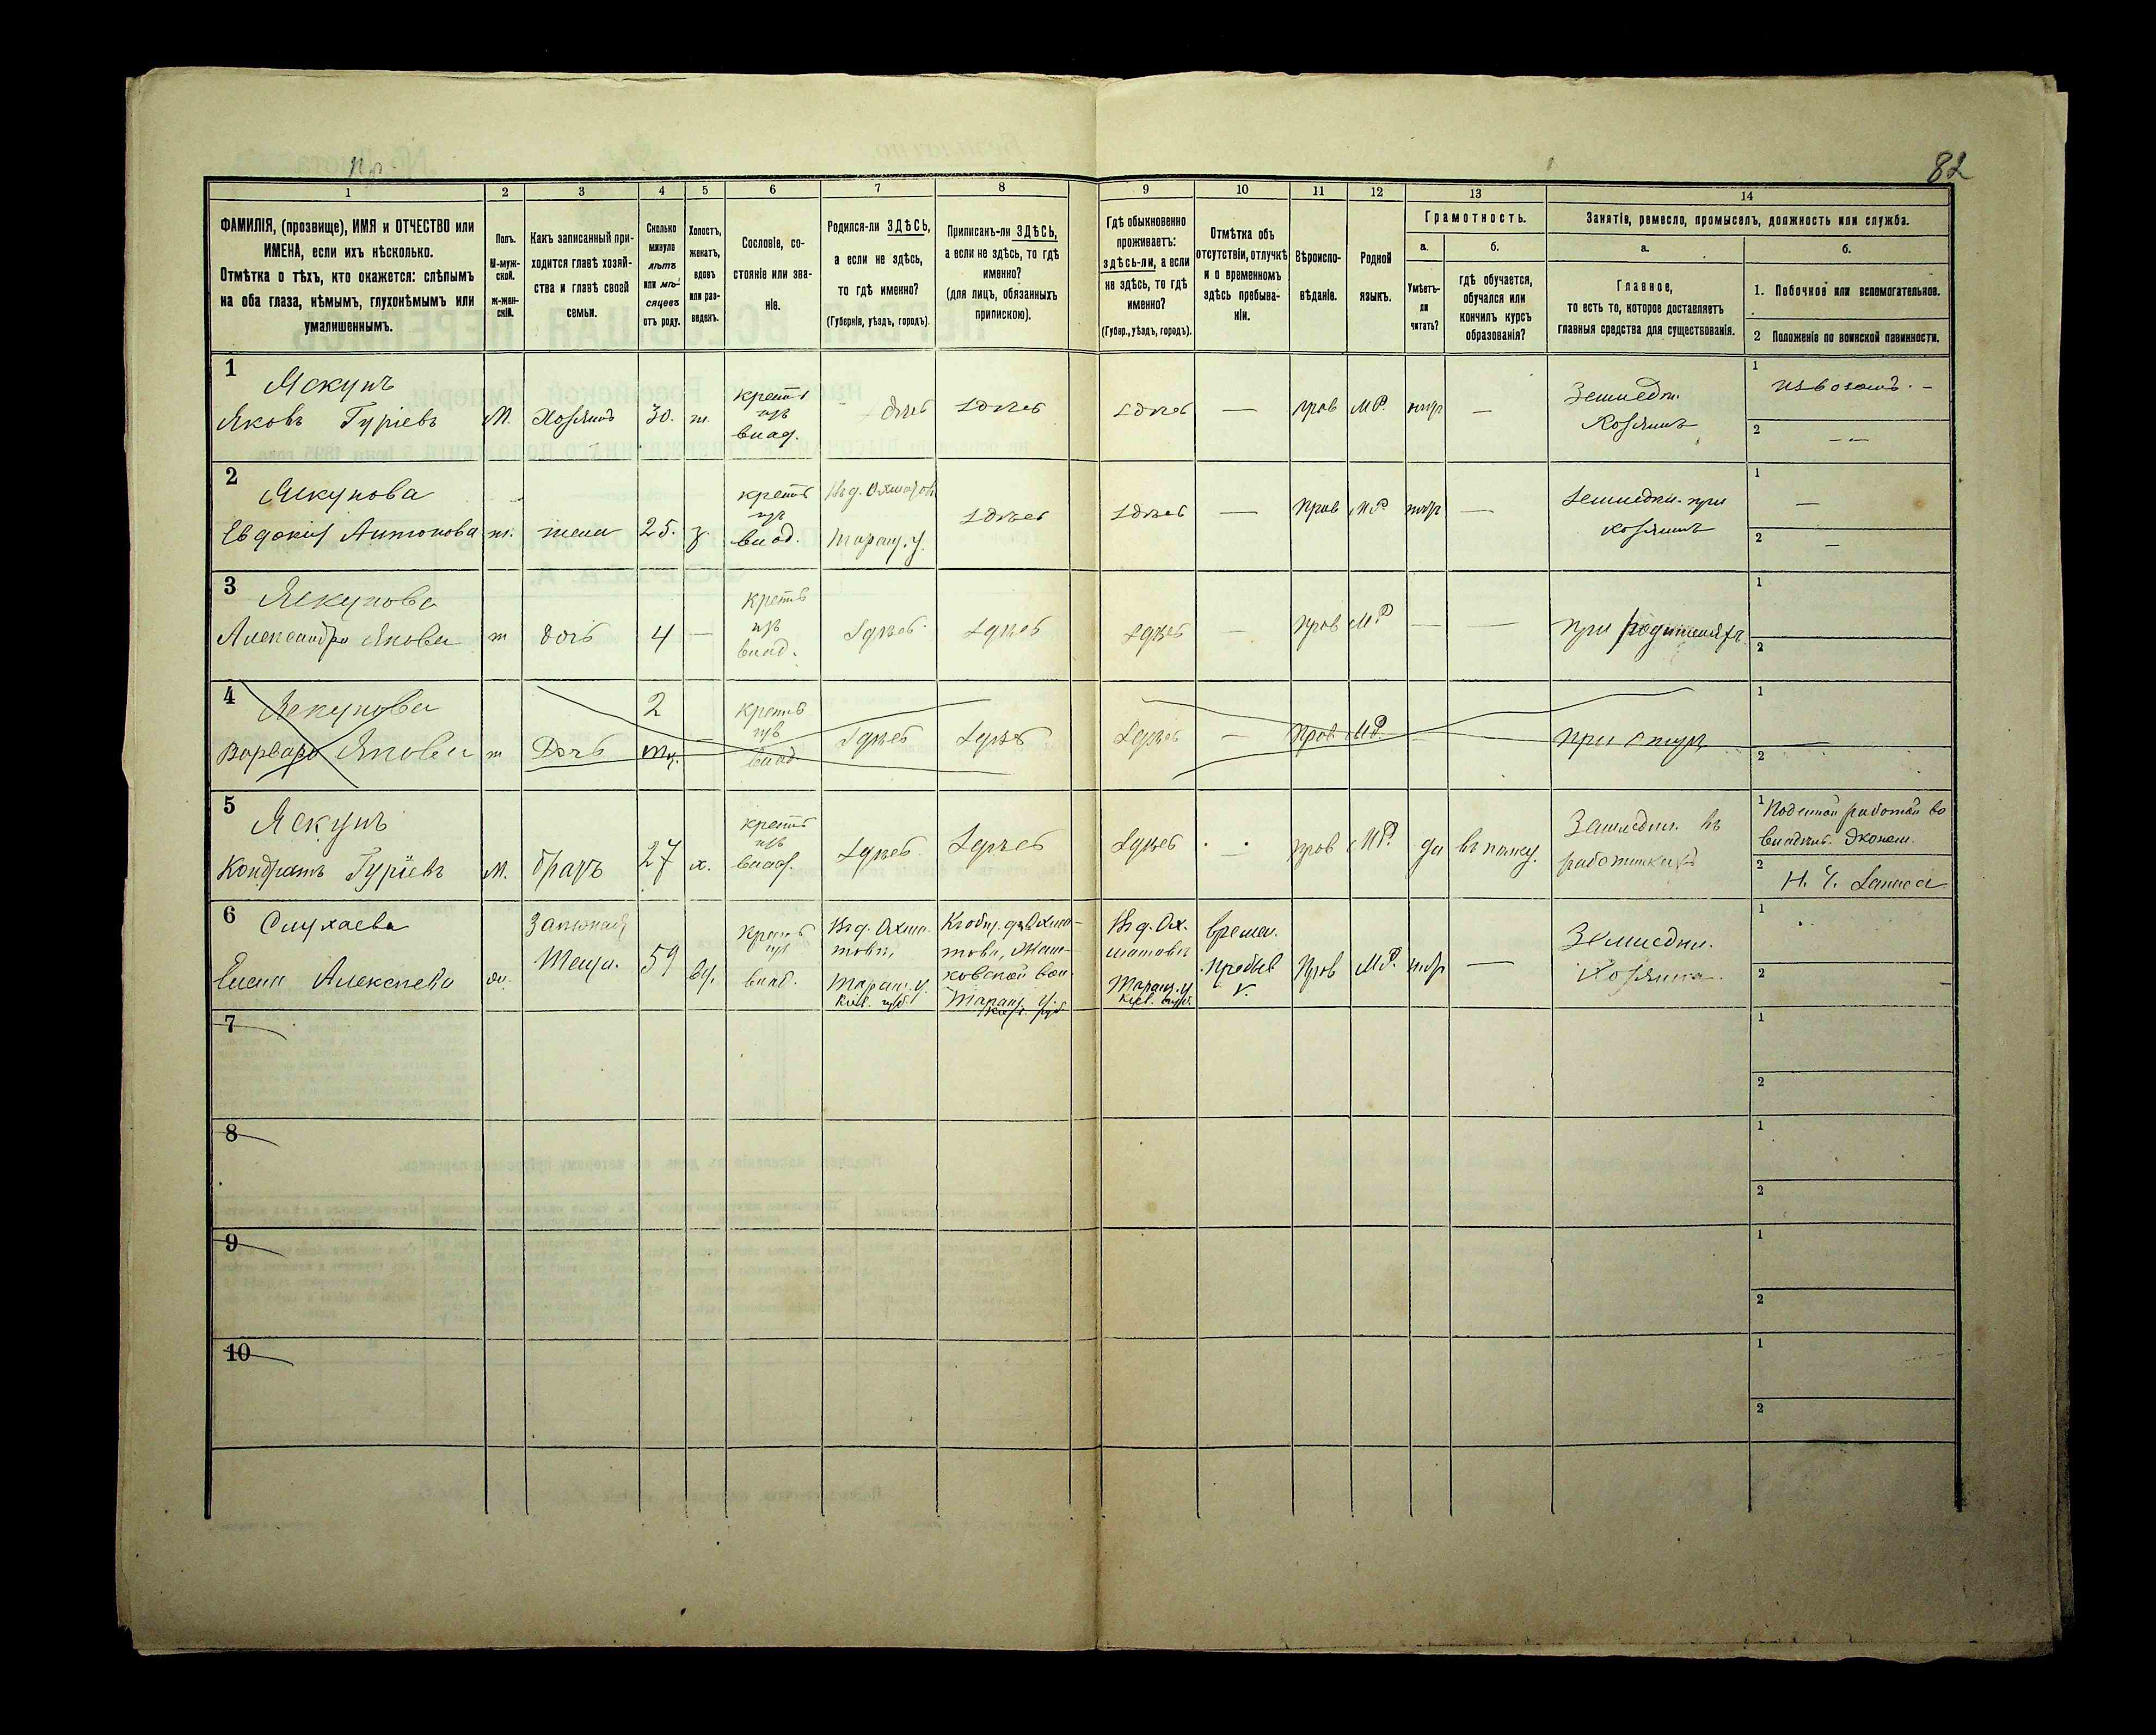 82
1
2
3
4
5
6
7
8
9
10
11
12
13
14
ФАМИЛІЯ, (прозвище), ИМЯ и ОТЧЕСТВО или
ИМЕНА, если ихъ нѣсколько.
Отмѣтка о тѣхъ, кто окажется: слѣпымъ
на оба глаза, нѣмымъ, глухонѣмымъ или
умалишеннымъ.
Полъ.
М-муж-
ской.
ж-жен-
скій.
Какъ записанный при-
ходится главѣ хозяй-
ства и главѣ своей
семьи.
Сколько
минуло
лѣтъ
или мѣ-
сяцевъ
отъ роду.
Холостъ,
женатъ,
вдовъ
или раз-
веденъ.
Сословіе, со-
стояніе или зва-
ніе.
Родился-ли ЗДѢСЬ,
а если не здѣсь,
то гдѣ именно?
(Губернія, уѣздъ, городъ).
Приписанъ-ли ЗДѢСЬ,
а если не здѣсь, то гдѣ
именно?
(для лицъ, обязанныхъ
припискою).
Гдѣ обыкновенно
проживаетъ:
здѣсь-ли, а если
не здѣсь, то гдѣ
именно?
(Губер., уѣздъ, городъ).
Отмѣтка объ
отсутствіи, отлучкѣ
и о временномъ
здѣсь пребыва-
ніи.
Вѣроиспо-
вѣданіе.
Родной
языкъ.
Грамотность.
а.
Умѣетъ-
ли
читать?
б.
гдѣ обучается,
обучался или
кончилъ курсъ
образованія?
Занятіе, ремесло, промыселъ, должность или служба.
а.
Главное,
то есть то, которое доставляетъ
главныя средства для существованія.
б.
1. Побочное или вспомогательное.
2 Положеніе по воинской павинности.
1
Яскунъ
Яковъ Гуріевъ
М.
Хозяинъ
30.
ж.
крест
изъ
влад.
здѣсь
здѣсь
здѣсь
—
прав
МР.
нгр
—
Земледѣл.
Хозяинъ
1
извозомъ. —
2
— —
2
Яскунова
Евдокія Антонова
ж.
жена
25.
з.
крест
изъ
влад.
Таращ. у.
здѣсь
здѣсь
—
прав
МР
нгр
—
Земледѣл. при
хозяинѣ
1
—
2
—
3
Яскунова
Александра Якова
ж
дочь
4
—
крест
изъ
влад.
Здѣсь
Здѣсь
Здѣсь
—
прав
МР
—
—
при родителяхъ
1
2
4
Яскунова
Варвара Якова
ж
Дочь
2
мц.
—
крест
изъ
влад.
Здѣсь
Здѣсь
Здѣсь
—
прав
МР.
1
2
5
Яскунъ
Кондратъ Гуріевъ
М.
братъ
27
х.
крест
изъ
влад.
Здѣсь
Здѣсь
Здѣсь
прав
МР.
да
Земледѣл. въ
работникахъ
1
Поденной работой во
владѣльч. Эконом.
2
6
Слухаева
Елена Алексѣева
ж.
Теща.
59
вд.
крест
изъ
влад.
Таращ. у.
Кіев. губ
Таращ. у.
Кіев. губ
Таращ. у
Кіев. губ
времен.
пребыв
прав
МР.
нгр
—
Земледѣл.
Хозяйка.
1
2
7
1
2
8
1
2
9
1
2
10
1
2